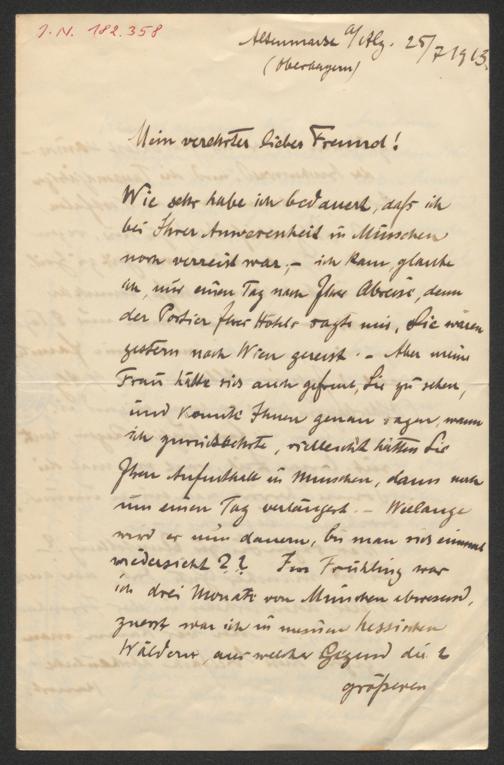 J. N. 182.358
Altenmarkt a/Alz. 25/7 1913.
(Oberbayern)
Mein verehrter lieber Freund!
Wie sehr habe ich bedauert, daß ich
bei Ihrer Anwesenheit in München
noch verreist war, – ich kam, glaube
ich, nur einen Tag nach Ihrer Abreise, denn
der Portier Ihres Hotels sagte mir, Sie wären
gestern nach Wien gereist. – Aber meine
Frau hätte sich auch gefreut, Sie zu sehen,
und konnte Ihnen genau sagen, wann
ich zurückkehrte, vielleicht hätten Sie
Ihren Aufenthalt in München, dann noch
um einen Tag verlängert. – Wielange
wird es nun dauern, bis man sich einmal
wiedersieht?? Im Frühling war
ich drei Monate von München abwesend,
zuerst war ich in meinen hessischen
Wäldern, aus welcher Gegend die 2
größeren